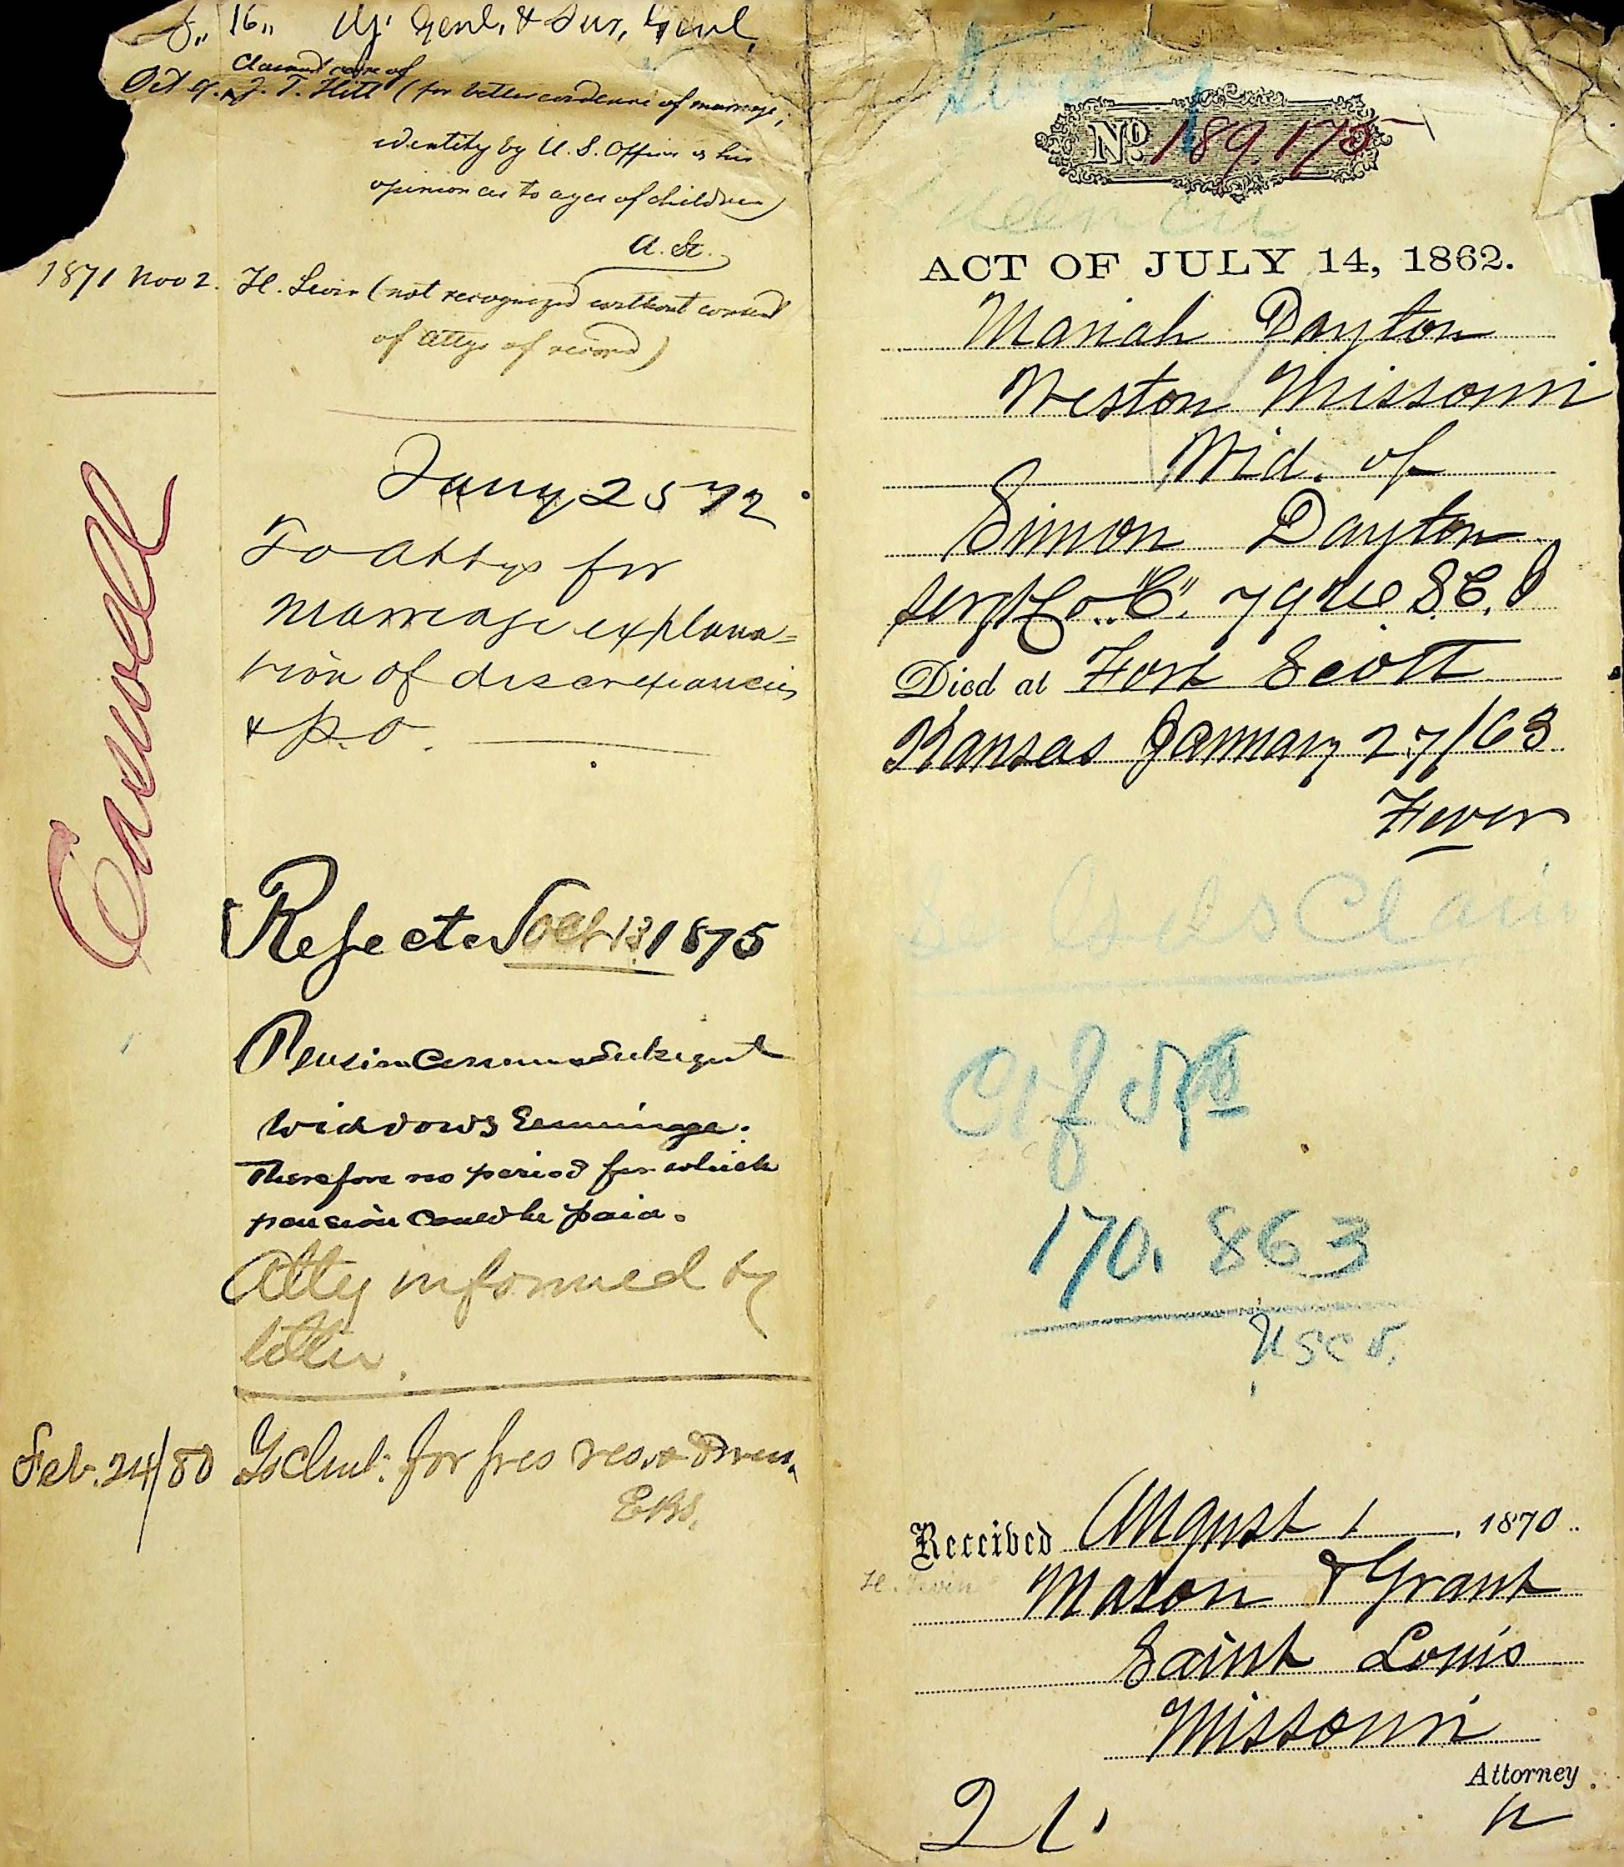 16,, Aj: Genl. & Sur, Genl,
Claimant care of
Oct 9. J. T. Hitt (for better evidence of marriage;
identity by U. S. Officer & his
opinion as to ages of children)
1871 Nov 2. H. Levin (not recognized without consent
of attys of record)
Jany 25 72
To Attys for
marriage explana=
tion of discrepancies
& P. O.
Rejected Oct 13. 1875
Pension
widdows
Therefore no period for which
pension could be paid.
Atty informed by
letter.
Feb. 24/80 for pres res.
No. 189.175
ACT OF JULY 14, 1862.
Mariah Dayton
Weston Missouri
Wid. of
Simon Dayton
Sergt Co "C". 79 S.C.
Died at Fort Scott
Kansas January 27/63
Fever
Claim
Ctf No
170.863
Received August 1, 1870
H. Levin
Mason & Grant
Saint Louis
Missouri
Attorney